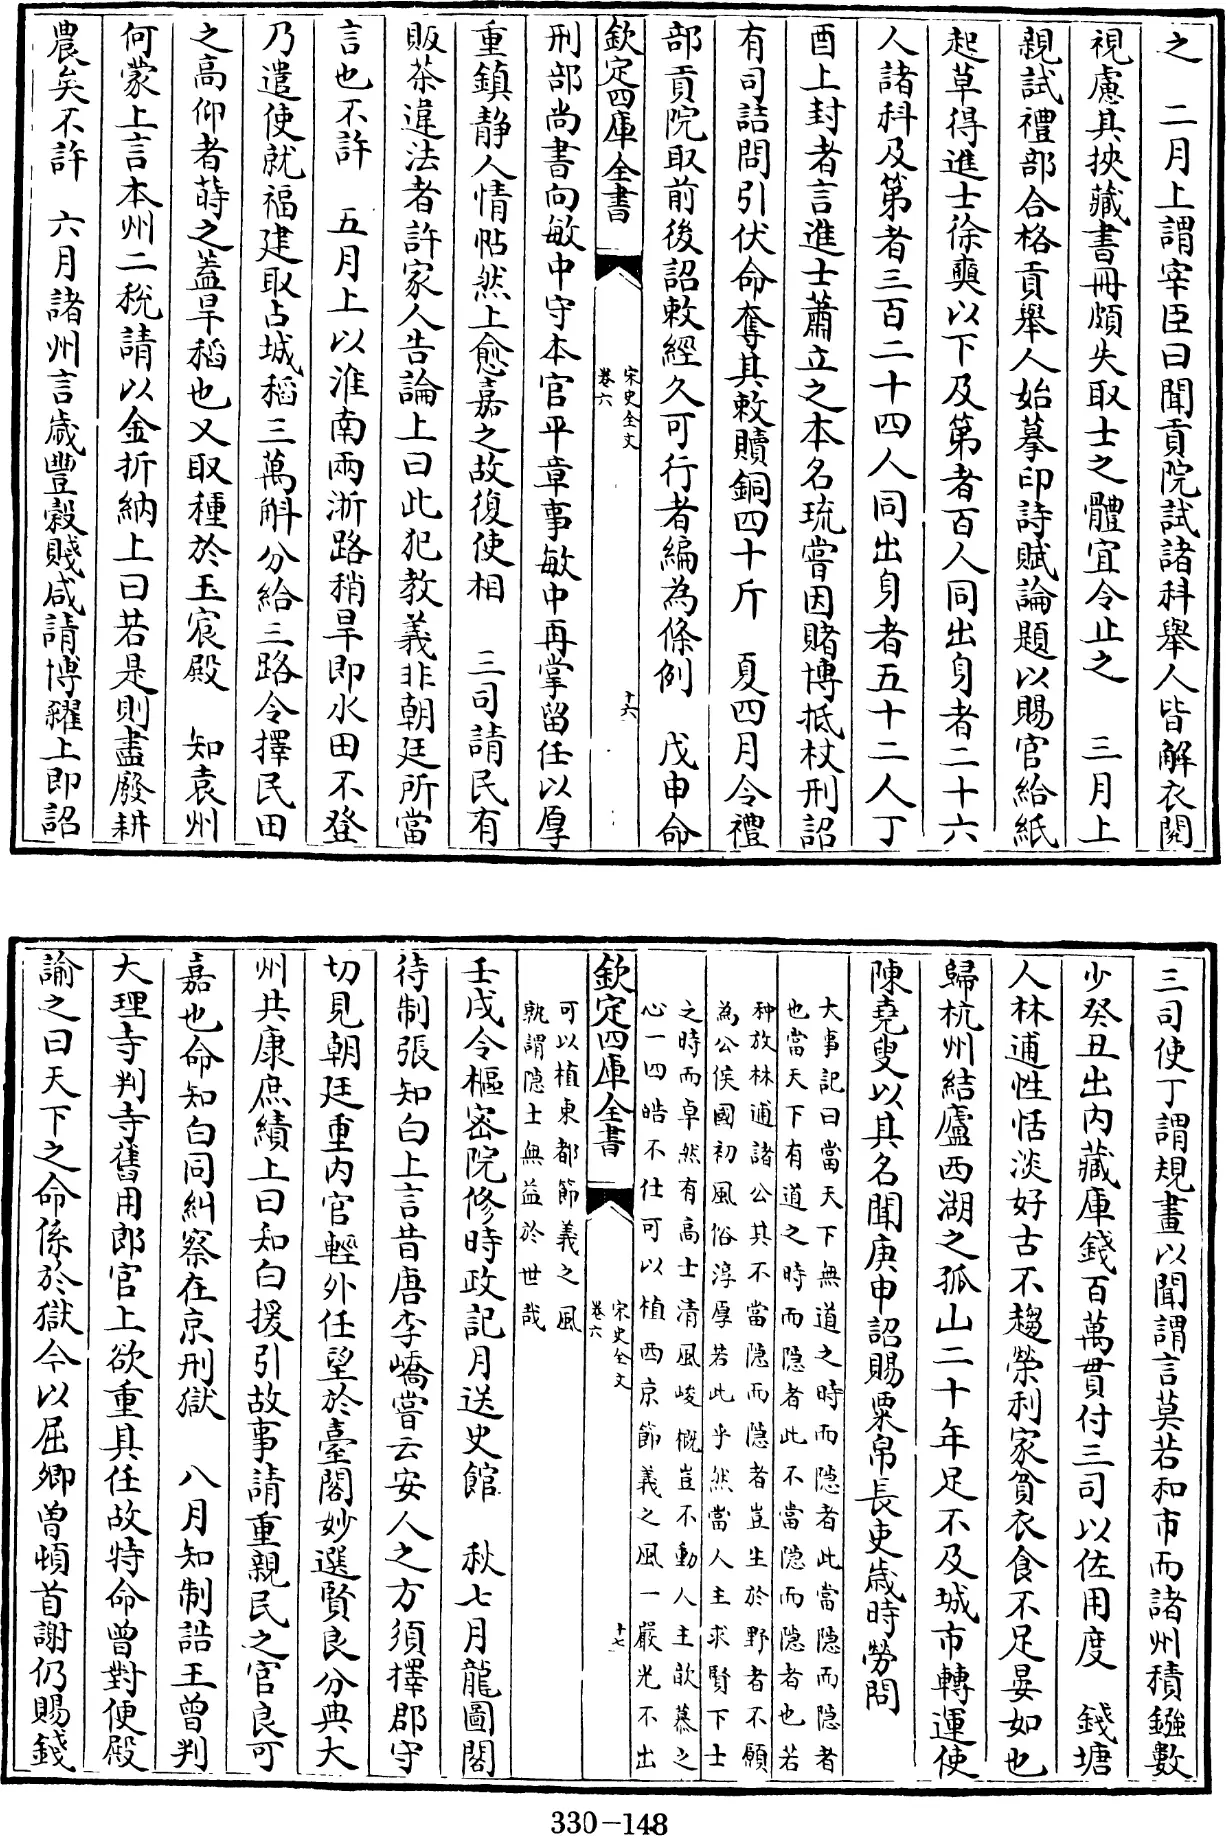 之　二月上謂宰臣曰聞貢院試諸科舉人皆解衣閱
視慮其挾藏書冊頗失取士之體宜令止之　三月上
親試禮部合格貢舉人始摹印詩賦論題以賜官給紙
起草得進士徐奭以下及第者百人同出身者二十六
人諸科及第者三百二十四人同出身者五十二人丁
酉上封者言進士蕭立之本名琉嘗因賭博抵杖刑詔
有司詰問引伏命奪其敕贖銅四十斤　夏四月令禮
部貢院取前後詔敕經久可行者編為條例　戊申命
欽定四庫全書
宋史全文
卷六
十六
刑部尚書向敏中守本官平章事敏中再掌留任以厚
重鎮靜人情帖然上愈嘉之故復使相　三司請民有
販茶違法者許家人告論上曰此犯教義非朝廷所當
言也不許　五月上以淮南兩浙路稍旱即水田不登
乃遣使就福建取占城稻三萬斛分給三路令擇民田
之高仰者蒔之蓋旱稻也又取種於玉宸殿　知袁州
何蒙上言本州二稅請以金折納上曰若是則盡廢耕
農矣不許　六月諸州言歲豐穀賤咸請博糴上即詔
三司使丁謂規畫以聞謂言莫若和市而諸州積鏹數
少癸丑出内藏庫錢百萬貫付三司以佐用度　錢塘
人林逋性恬淡好古不趨榮利家貧衣食不足晏如也
歸杭州結廬西湖之孤山二十年足不及城市轉運使
陳堯叟以其名聞庚申詔賜粟帛長吏歲時勞問
大事記曰當天下無道之時而隐者此當隐而隐者
也當天下有道之時而隐者此不當隐而隐者也若
种放林逋諸公其不當隐而隐者豈生於野者不願
為公侯國初風俗淳厚若此乎然當人主求賢下士
之時而卓然有高士清風峻概豈不動人主歆慕之
心一四皓不仕可以植西京節義之風一嚴光不出
欽定四庫全書
宋史全文
卷六
十七
可以植東都節義之風
孰謂隐士無益於世哉
壬戌令樞密院修時政記月送史館　秋七月龍圖閣
待制張知白上言昔唐李嶠嘗云安人之方須擇郡守
切見朝廷重内官輕外任望於臺閣妙選賢良分典大
州共康庶績上曰知白援引故事請重親民之官良可
嘉也命知白同糾察在京刑獄　八月知制誥王曾判
大理寺判寺舊用郎官上欲重其任故特命曾對便殿
諭之曰天下之命係於獄今以屈卿曾頓首謝仍賜錢
330-148